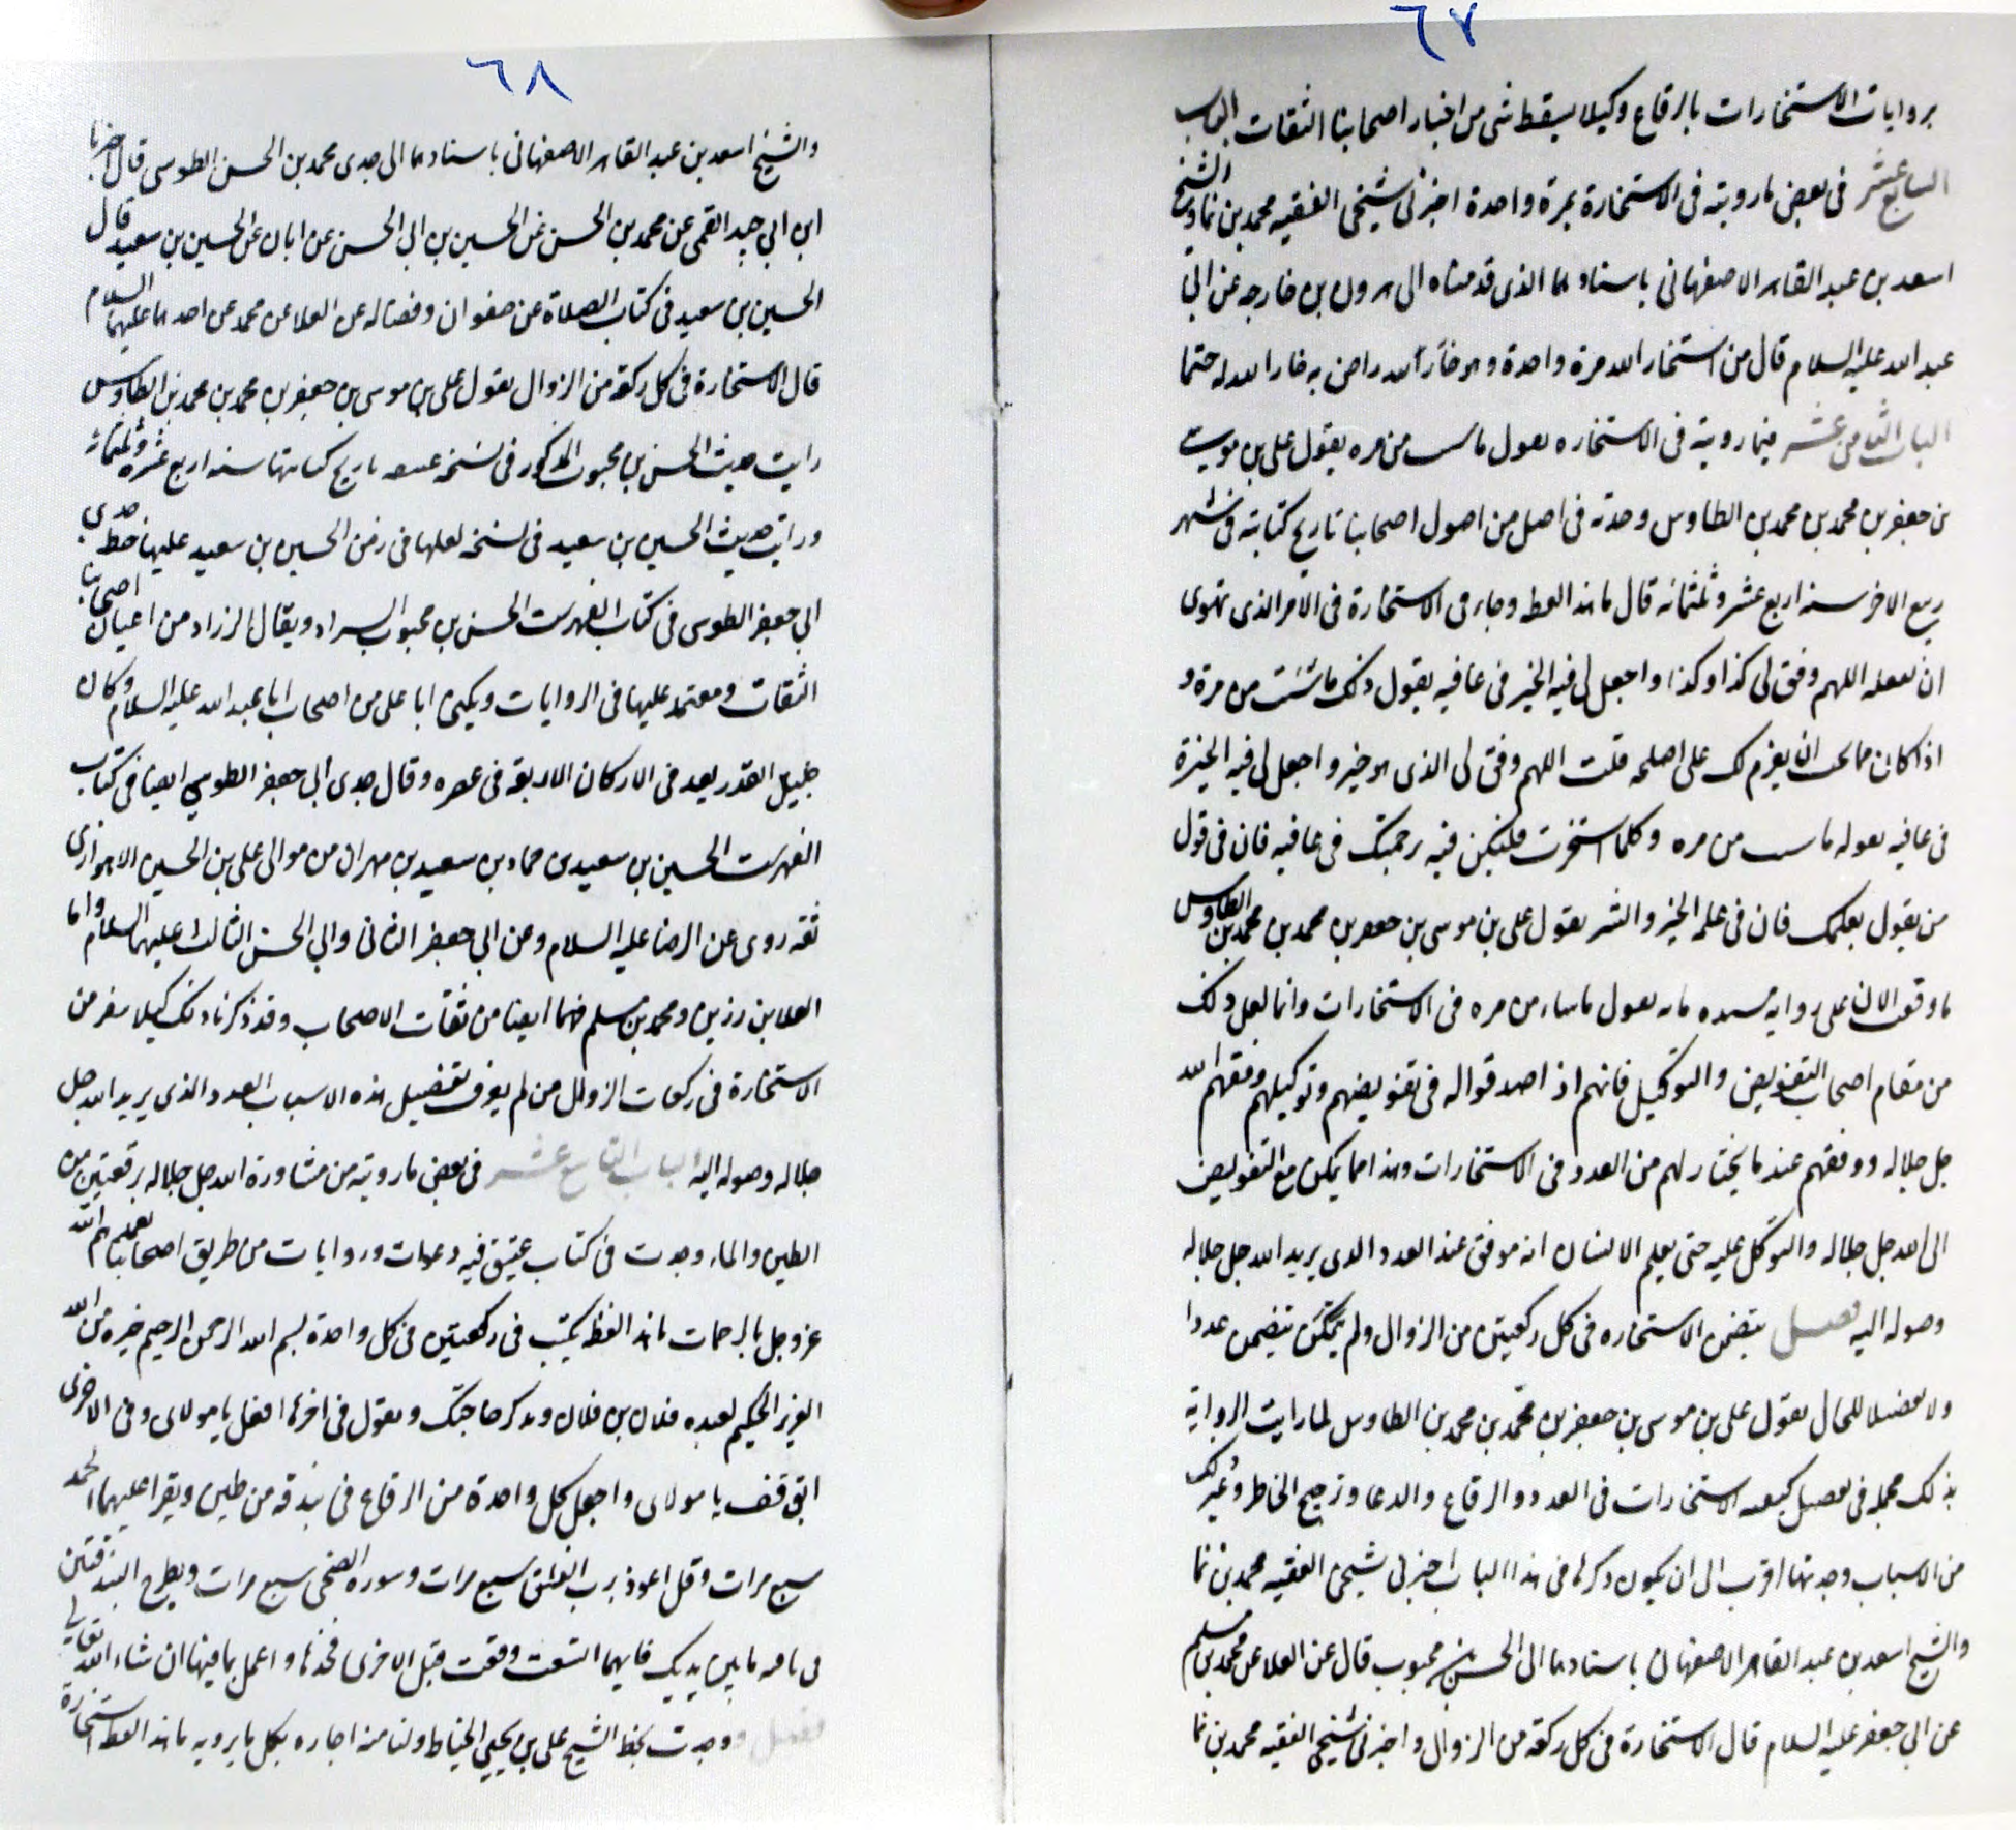 ٦٧
بروايات الاستخارات بالرقاع وكيلا يسقط شى من اخبار اصحابنا الثقات الباب
السابع عشر فى بعض ما رويته فى الاستخارة بمرة واحدة اخبرنى شيخى الفقيه محمد بن نما والشيخ
اسعد بن عبد القاهر الاصفهانى باسنادهما الذى قدمناه الى هرون بن خارجه عن ابى
عبد الله عليه السلام قال من استخار الله مرة واحدة وهو راض به خار الله له حتما
الباب الثامن عشر فيما رويته فى الاستخاره يقول من مره يقول على بن موسى
بن جعفر بن محمد بن محمد بن الطاوس وجدته فى اصل من اصول اصحابنا تاريخ كتابته فى شهر
ربيع الاخر سنه اربع عشر وثلثمائه قال ما هذا لفظه وجاء فى الاستخارة فى الامر الذى تهوى
ان تفعله اللهم وفق لى كذا وكذا واجعل لى فيه الخير فى عافيه يقول ذلك ما شئت من مرة و
اذا كان مما تحب ان يعزم لك على اصلحه قلت اللهم وفق لى الذى هو خير واجعل لى فيه الخيرة
فى عافيه من مره وكلما استخرت فليكن فيه برحمتك فى عافيه فان فى قول
من يقول بعلمك فان فى علمه الخير والشر يقول على بن موسى بن جعفر بن محمد بن محمد بن الطاوس
ما وقفت الان على روايه يقول ما شاء من مره فى الاستخارات وانما لعل ذلك
من مقام اصحاب التفويض والتوكيل فانهم اذا صدقوا له فى تفويضهم وتوكيلهم وفقهم الله
جل جلاله ووفقهم عند ما يختار لهم من العدد فى الاستخارات وهذا مما يمكن مع التفويض
الى الله جل جلاله والتوكل عليه حتى يعلم الانسان انه موفق عند العدد الذى يريد الله جل جلاله
وصوله اليه فصل يتضمن الاستخاره فى كل ركعتين من الزوال ولم يتضمن عددا
ولا تفضيلا للحال يقول على بن موسى بن جعفر بن محمد بن محمد بن الطاوس لما رايت الرواية
بذلك مجمله فى تفصيل الاستخارات فى العدد والرقاع والدعا وترجيح الخاطر وغير ذلك
من الاسباب وجدتها اقرب الى ان يكون ذكرها فى هذا الباب اخبرنى شيخى الفقيه محمد بن نما
والشيخ اسعد بن عبد القاهر الاصفهانى باسنادهما الى الحسن بن محبوب قال عن العلا عن محمد بن مسلم
عن ابى جعفر عليه السلام قال الاستخارة فى كل ركعة من الزوال واخبرنى شيخى الفقيه محمد بن نما
٦٨
والشيخ اسعد بن عبد القاهر الاصفهانى باسنادهما الى جدى محمد بن الحسن الطوسى قال اخبرنا
ابن ابى جيد القمى عن محمد بن الحسن عن الحسين بن ابى الحسن عن ابان عن الحسين بن سعيد قال
الحسين بن سعيد فى كتاب الصلاة عن صفوان وفضاله عن العلا عن محمد عن احدهما عليهما السلام
قال الاستخارة فى كل ركعة من الزوال يقول على بن موسى بن جعفر بن محمد بن محمد بن الطاوس
رايت حديث الحسن بن محبوب المذكور فى نسخه تاريخ كتابتها سنه اربع عشره وثلثمائه
ورايت حديث الحسين بن سعيد فى نسخه لعلها فى زمن الحسين بن سعيد عليها خط جدى
ابى جعفر الطوسى فى كتاب الفهرست الحسن بن محبوب السراد ويقال الزراد من اعيان اصحابنا
الثقات ومعتمد عليها فى الروايات ويكنى ابا على من اصحاب ابا عبد الله عليه السلام وكان
جليل القدر يعد فى الاركان الاربعة فى عصره وقال جدى ابى جعفر الطوسى ايضا فى كتاب
الفهرست الحسين بن سعيد بن حماد بن سعيد بن مهران من موالى على بن الحسين الاهوازى
ثقه روى عن الرضا عليه السلام وعن ابى جعفر الثانى وابى الحسن الثالث عليهم السلام واما
العلا بن رزين ومحمد بن مسلم فهما ايضا من ثقات الاصحاب وقد ذكرنا ذلك كيلا ينفر من
الاستخارة فى ركعات الزوال من لم يعرف تفضيل هذه الاسباب العدد الذى يريد الله جل
جلاله وصوله اليه الباب التاسع عشر فى بعض ما رويته من مشاورة الله جل جلاله برقعتين من
الطين والماء وجدت فى كتاب عتيق فيه دعوات وروايات من طريق اصحابنا تغمدهم الله
عز وجل بالرحمات ما هذا لفظه يكتب فى رقعتين فى كل واحدة بسم الله الرحمن الرحيم خيرة من الله
العزيز الحكيم لعبده فلان بن فلان وتذكر حاجتك وتقول فى اخرها افعل يا مولاى وفى الاخرى
اتوقف يا مولاى واجعل كل واحدة من الرقاع فى بندقه من طين ويقرا عليهما الحمد
سبع مرات وقل اعوذ برب الفلق سبع مرات وسوره الضحى سبع مرات ويطرح البندقتين
فى ما بين يديك فايهما انشقت وقفت قبل الاخرى فخذها واعمل بما فيها ان شاء الله تعالى
فصل ووجدت بخط الشيخ على بن يحيى الخياط ولنا منه اجازه بكل ما يرويه ما هذا لفظه استخارة